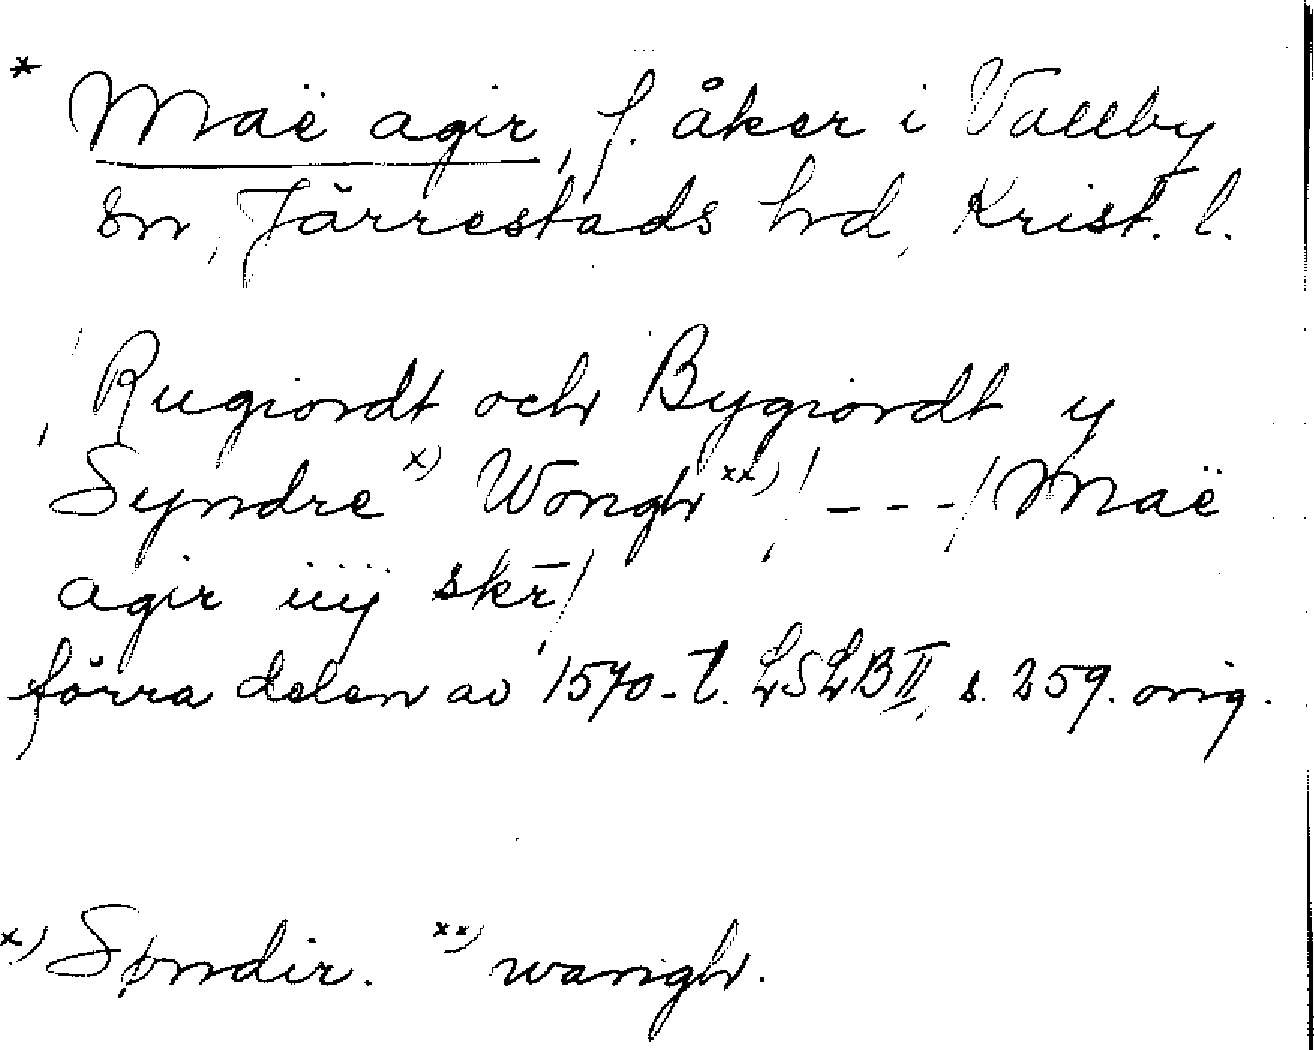 * Maë agir, f. åker i Vallby
sn, Järrestads hd, Krist. l.
, Rugiordt och Bygiordt y
Syndre x) Wongh xx) / - - - / Maë
agir iiij skr̄ /
förra delen av 1570-t. LSLB II, s. 259. orig.
x) Søndir. xx) wangh.